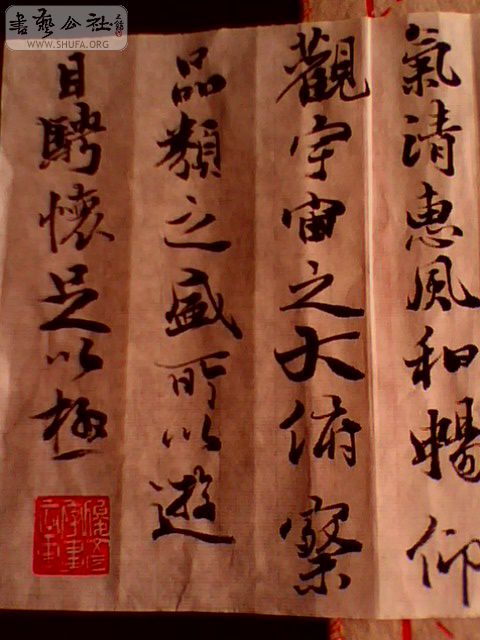 氣清惠風和暢仰
觀宇宙之大俯察
品類之盛所以遊
目騁懷足以極
書藝公社
WWW.SHUFA.ORG